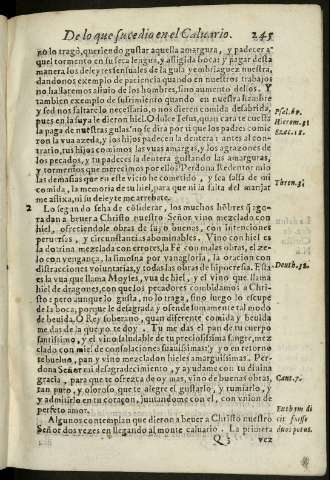 De lo que sucedio en el Caluario. 245
no lo tragò, queriendo gustar aquella amargura, y padecer a-
quel tormento en su seca lengua, y afligida boca: y pagar desta
manera los deleytes sensuales de la gula y embriaguez nuestra,
dandonos exemplo de paciencia quando en nuestros trabajos
no hallaremos aliuio de los hombres, sino aumento dellos. Y
tambien exemplo de sufrimiento quando en nuestra hambre
y sed nos faltare lo necessario, o nos dieren comida desabrida,
pues en la suya le dieron hiel. O dulce Iesus, quan cara te cuesta
la paga de nuestras gulas! no se dira por ti que los padres comie
ron la vua azeda, y los hijos padecen la dentera: antes al con-
trario, tus hijos comimos las vuas amargas, y los agrazones
de los pecados, y tu padeces la dentera gustando las amarguras,
y tormentos que merecimos por ellos. Perdona Redentor mio
las demasias que en este vicio he cometido, y sea salsa de mi
comida, la memoria de tu hiel, para que ni la falta del manjar
me aflixa, ni su deleyte me arrebate.
2 Lo segundo se ha de cōsiderar, los muchos hōbres q̄ ago-
ra dan a beuer a Christo nuestro Señor vino mezclado con
hiel, ofreciendole obras de suyo buenas, con intenciones
peruersas, y circunstancias abominables. Vino con hiel es
la dotrina mezclada con errores, la Fè con malas obras, el ze-
lo con vengança, la limosna por vanagloria, la oracion con
distracciones voluntarias, y todas las obras de hipocresia. Esta
es la vua que llama Moyses, vua de hiel, y el vino que llama
hiel de dragones, con que los pecadores combidamos a Chri-
sto: pero aunque lo gusta, no lo traga, sino luego lo escupe
de la boca, porque le desagrada y ofende sumamente tal modo
de beuida. O Rey soberano, quan diferente comida y beuida
me das de la que yo te doy. Tu me das el pan de tu cuerpo
santissimo, y el vino saludable de tu preciosissima sangre, mez
clado con miel de consolaciones suauissimas: y yo en retorno
te bueluo, pan y vino mezclado con hieles amarguissimas. Per-
dona Señor mi desagradecimiento, y ayudame con tu diuina
gracia, para que te ofrezca de oy mas, vino de buenas obras,
tan puro, y oloroso, que te alegre el gustarlo, y rumiarlo, y
y admitirlo en tu coraçon, juntandome con el, con vnion de
perfeto amor.
Algunos contemplan que dieron a beuer a Christo nuestro
Señor dos vezes en llegando al monte caluario. La primera
Q 3 vez
Psal. 68.
Hierem. 31
Ezec. 18.
Thren. 3.
Deuth. 32.
Cant. 7.
Euthym di
cit fuisse
duos potus.